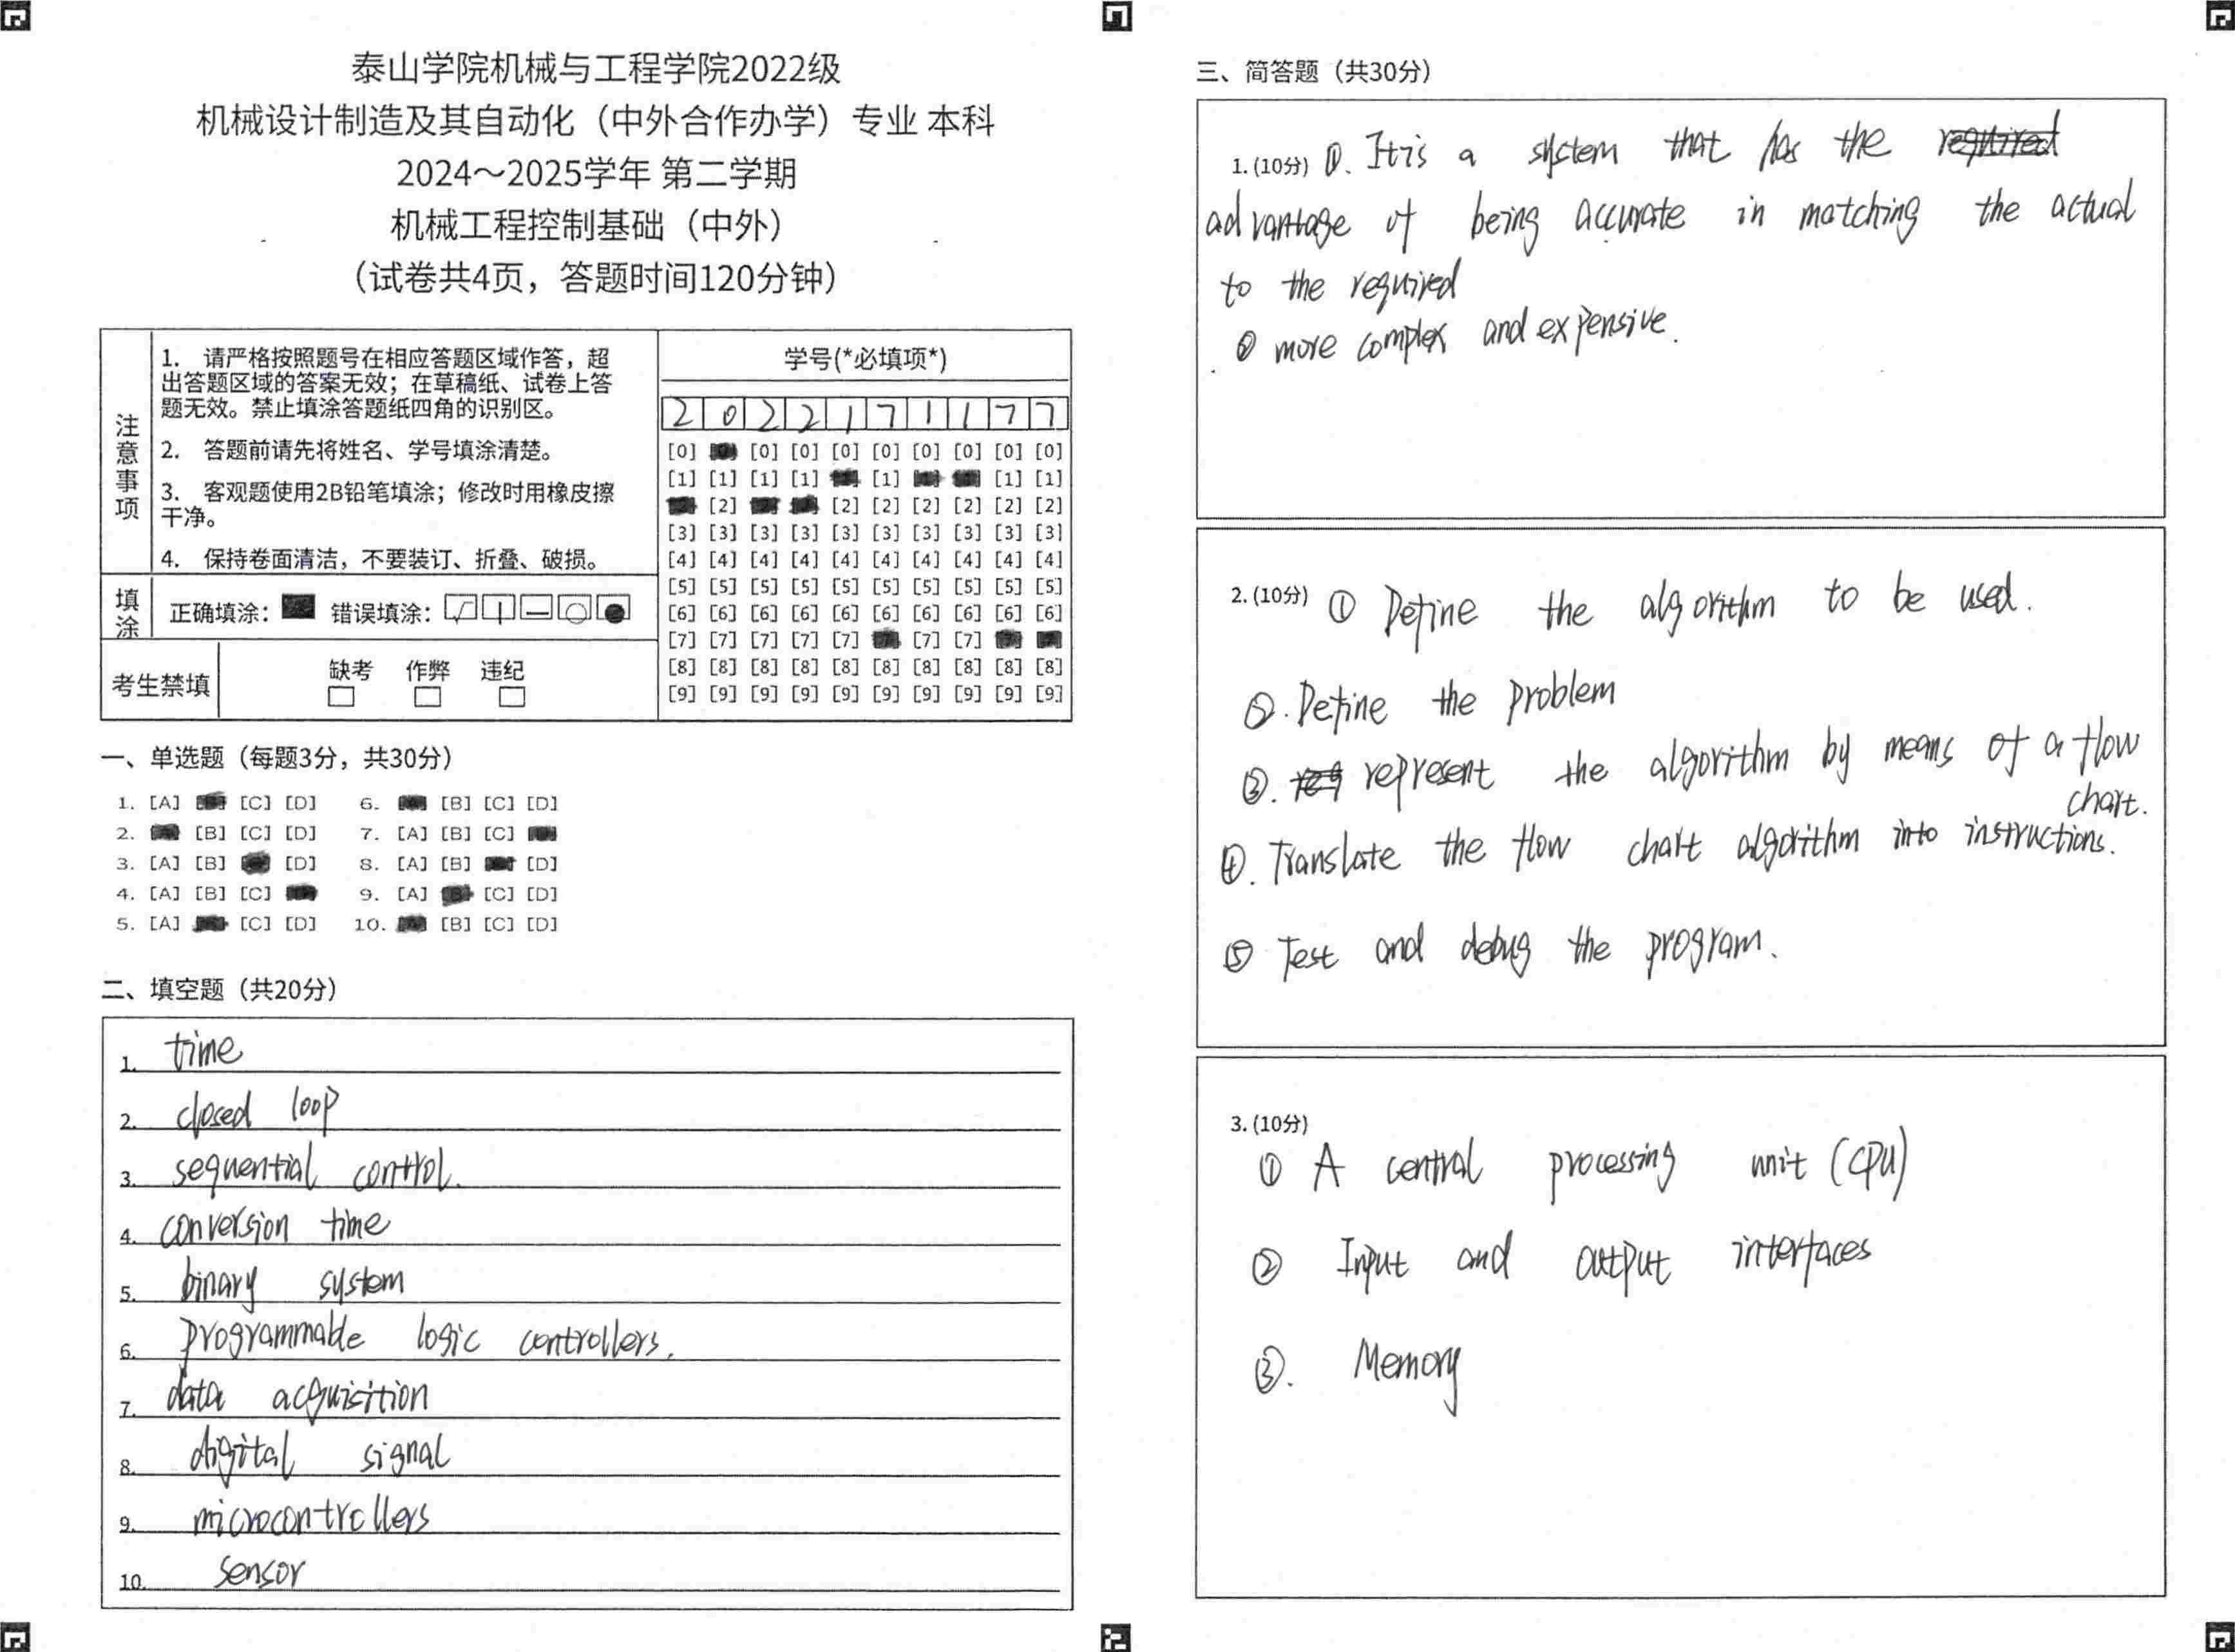 泰山学院机械与工程学院2022级
机械设计制造及其自动化（中外合作办学）专业 本科
2024～2025学年 第二学期
机械工程控制基础（中外）
（试卷共4页，答题时间120分钟）
注意事项
1. 请严格按照题号在相应答题区域作答，超
出答题区域的答案无效；在草稿纸、试卷上答
题无效。禁止填涂答题纸四角的识别区。
2. 答题前请先将姓名、学号填涂清楚。
3. 客观题使用2B铅笔填涂；修改时用橡皮擦
干净。
4. 保持卷面清洁，不要装订、折叠、破损。
填涂 正确填涂： 错误填涂：
考生禁填 缺考 作弊 违纪
学号(*必填项*)
2 0 2 2 1 7 1 1 7 7
[0] [0] [0] [0] [0] [0] [0] [0] [0]
[1] [1] [1] [1] [1] [1] [1]
[2] [2] [2] [2] [2] [2] [2]
[3] [3] [3] [3] [3] [3] [3] [3] [3] [3]
[4] [4] [4] [4] [4] [4] [4] [4] [4] [4]
[5] [5] [5] [5] [5] [5] [5] [5] [5] [5]
[6] [6] [6] [6] [6] [6] [6] [6] [6] [6]
[7] [7] [7] [7] [7] [7] [7]
[8] [8] [8] [8] [8] [8] [8] [8] [8] [8]
[9] [9] [9] [9] [9] [9] [9] [9] [9] [9]
一、单选题（每题3分，共30分）
1. [A] [C] [D] 6. [B] [C] [D]
2. [B] [C] [D] 7. [A] [B] [C]
3. [A] [B] [D] 8. [A] [B] [D]
4. [A] [B] [C] 9. [A] [B] [C] [D]
5. [A] [C] [D] 10. [B] [C] [D]
二、填空题（共20分）
1. time
2. closed loop
3. sequential control.
4. conversion time
5. binary system
6. programmable logic controllers.
7. data acquisition
8. digital signal
9. microcontrollers
10. sensor
三、简答题（共30分）
1. (10分) ①. It is a system that has the required
advantage of being accurate in matching the actual
to the required
② more complex and expensive.
2. (10分) ① Define the algorithm to be used.
②. Define the problem
③. represent the algorithm by means of a flow
chart.
④. Translate the flow chart algorithm into instructions.
⑤ Test and debug the program.
3. (10分)
① A central processing unit (CPU)
② Input and output interfaces
③. Memory